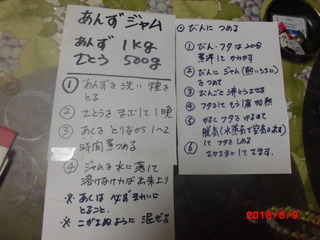 あんずジャム
あんず 1kg
さとう 500g
① あんずを洗い 種を
とる
② さとうを まぶして 1晩
③ あくを とりながら 1〜2
時間 煮つめる
④ ジャムを 水に 落して
溶けなければ 出来上り
※ あくは 必ず きれいに
とること
※ こがさぬように 混ぜる
○ びんに つめる
① びん・フタは 20分
煮沸して かわかす
② びんに ジャム(熱いうちに)
をつめて
③ びんごと 沸とうさせる
④ フタをして もう1度 加熱
⑤ かるく フタを ゆるめて
脱気(水蒸気で空気を出す)
して フタを しめる
⑥ さかさまにして さます。
2016/6/9